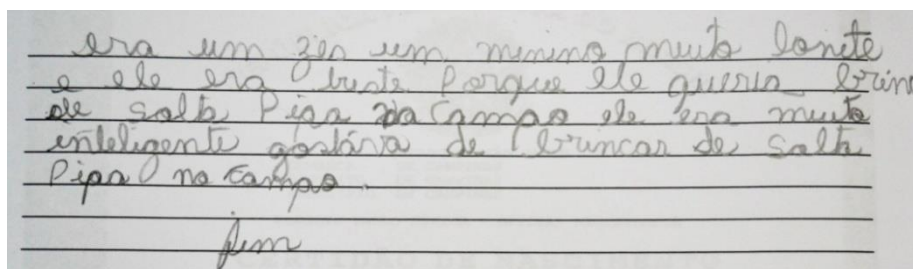 era um zes um menino muito bonito
e ele era triste porque ele queria brin
de solta Pipa na campo ele era muito
inteligente gostária de brincar de solta
Pipa no campo.
fim